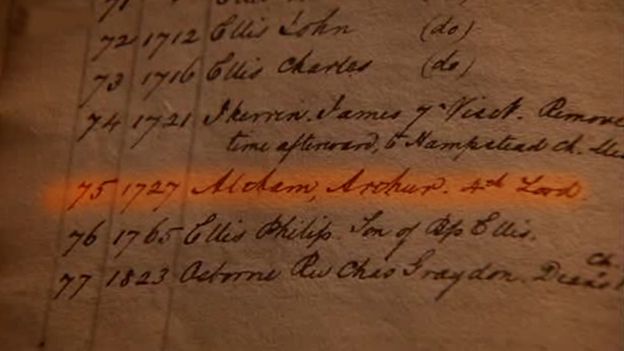 72 1712 Ellis John (do)
73 1716 Ellis Charles (do)
74 1721 Ikerrin. James 7th Visct. Remove
time afterward, to Hampstead Ch.
75 1727 Altham, Arthur. 4th Lord.
76 1765 Ellis Philip. Son of Bp Ellis.
77 1823 Osborne Rev Chas Graydon. Dean's Ch.